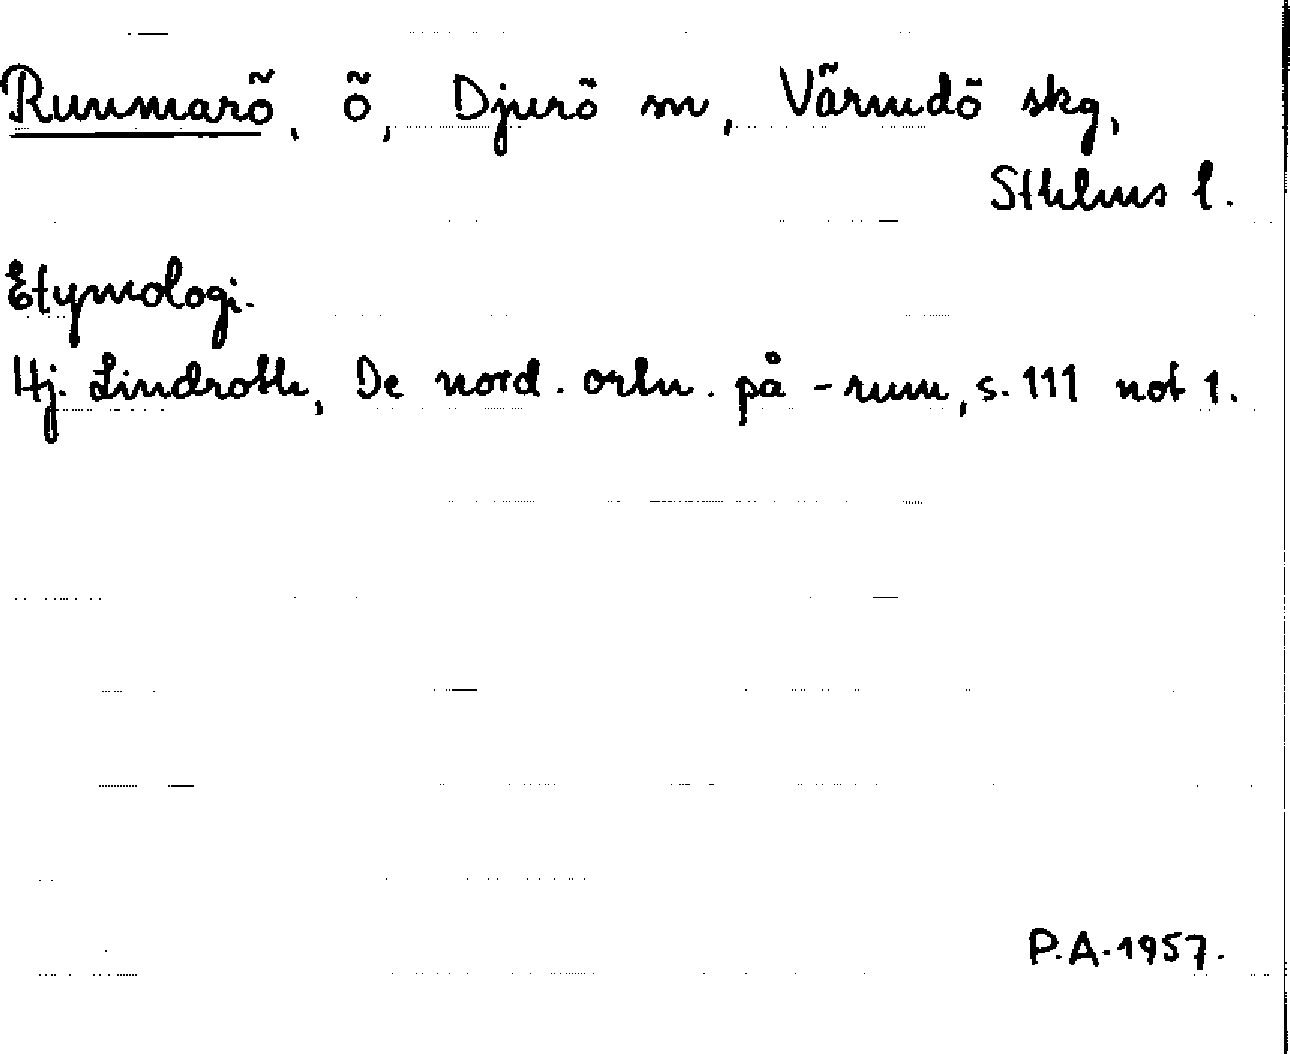 Runmarö, ö, Djurö sn, Värmdö skg,
Sthlms l.
Etymologi.
Hj. Lindroth, De nord. ortn. på -rum, s. 111 not 1.
P.A. 1957.